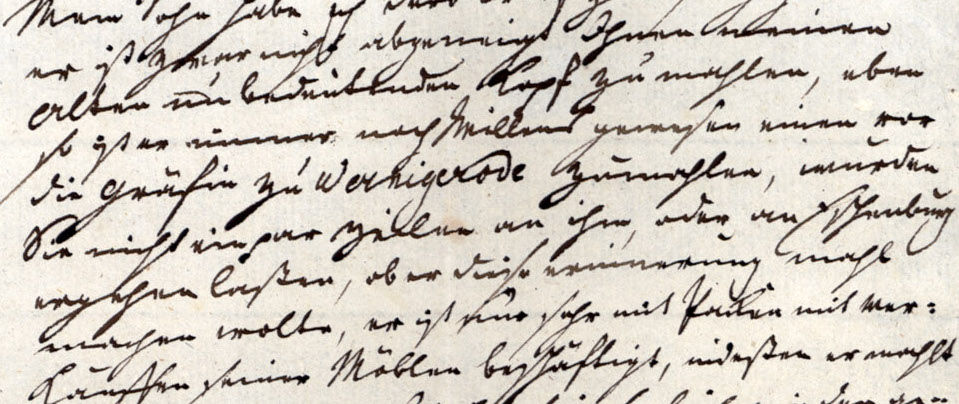 Mein Sohn habe ich
er ist zwar nicht abgeneigt Ihnen meinen
alten unbedeutenden Kopf zu mahlen, eben
so ist er immer noch Willens gewesen einen vor
die Gräfin zu Wernigerode zumahlen, wurden
Sie nicht ein par Zeilen an ihm, oder an Eschenburg
ergehen laßen, ob er diese erinnerung mahl
machen wolte, er ist nur sehr mit Paken mit ver=
kauffen seiner Möblen beschäftigt, indeßen er macht